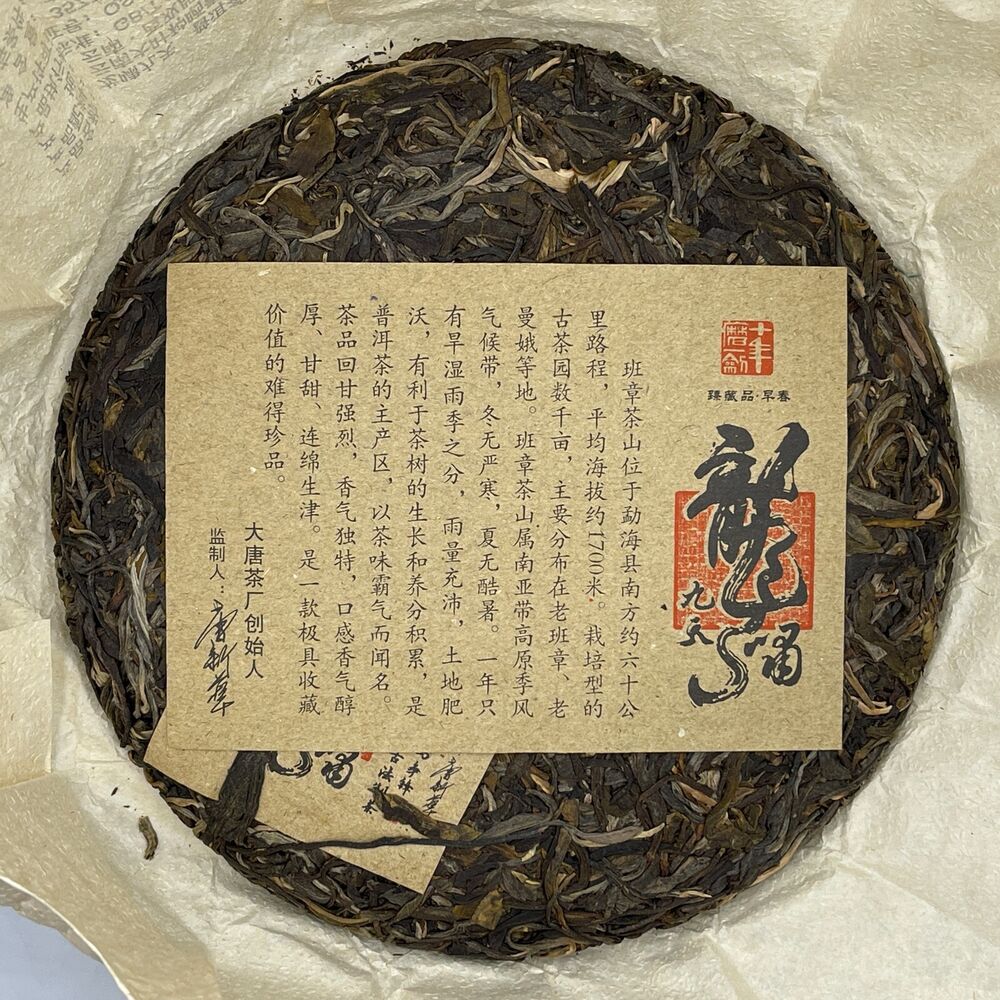 十年
磨一剑
臻藏品·早春
龍
九天
嘯
班章茶山位于勐海县南方约六十公
里路程，平均海拔约1700米。栽培型的
古茶园数千亩，主要分布在老班章、老
曼娥等地。班章茶山属南亚带高原季风
气候带，冬无严寒，夏无酷暑。一年只
有旱湿雨季之分，雨量充沛，土地肥
沃，有利于茶树的生长和养分积累，是
普洱茶的主产区，以茶味霸气而闻名。
茶品回甘强烈，香气独特，口感香气醇
厚、甘甜、连绵生津。是一款极具收藏
价值的难得珍品。
大唐茶厂创始人
监制人：